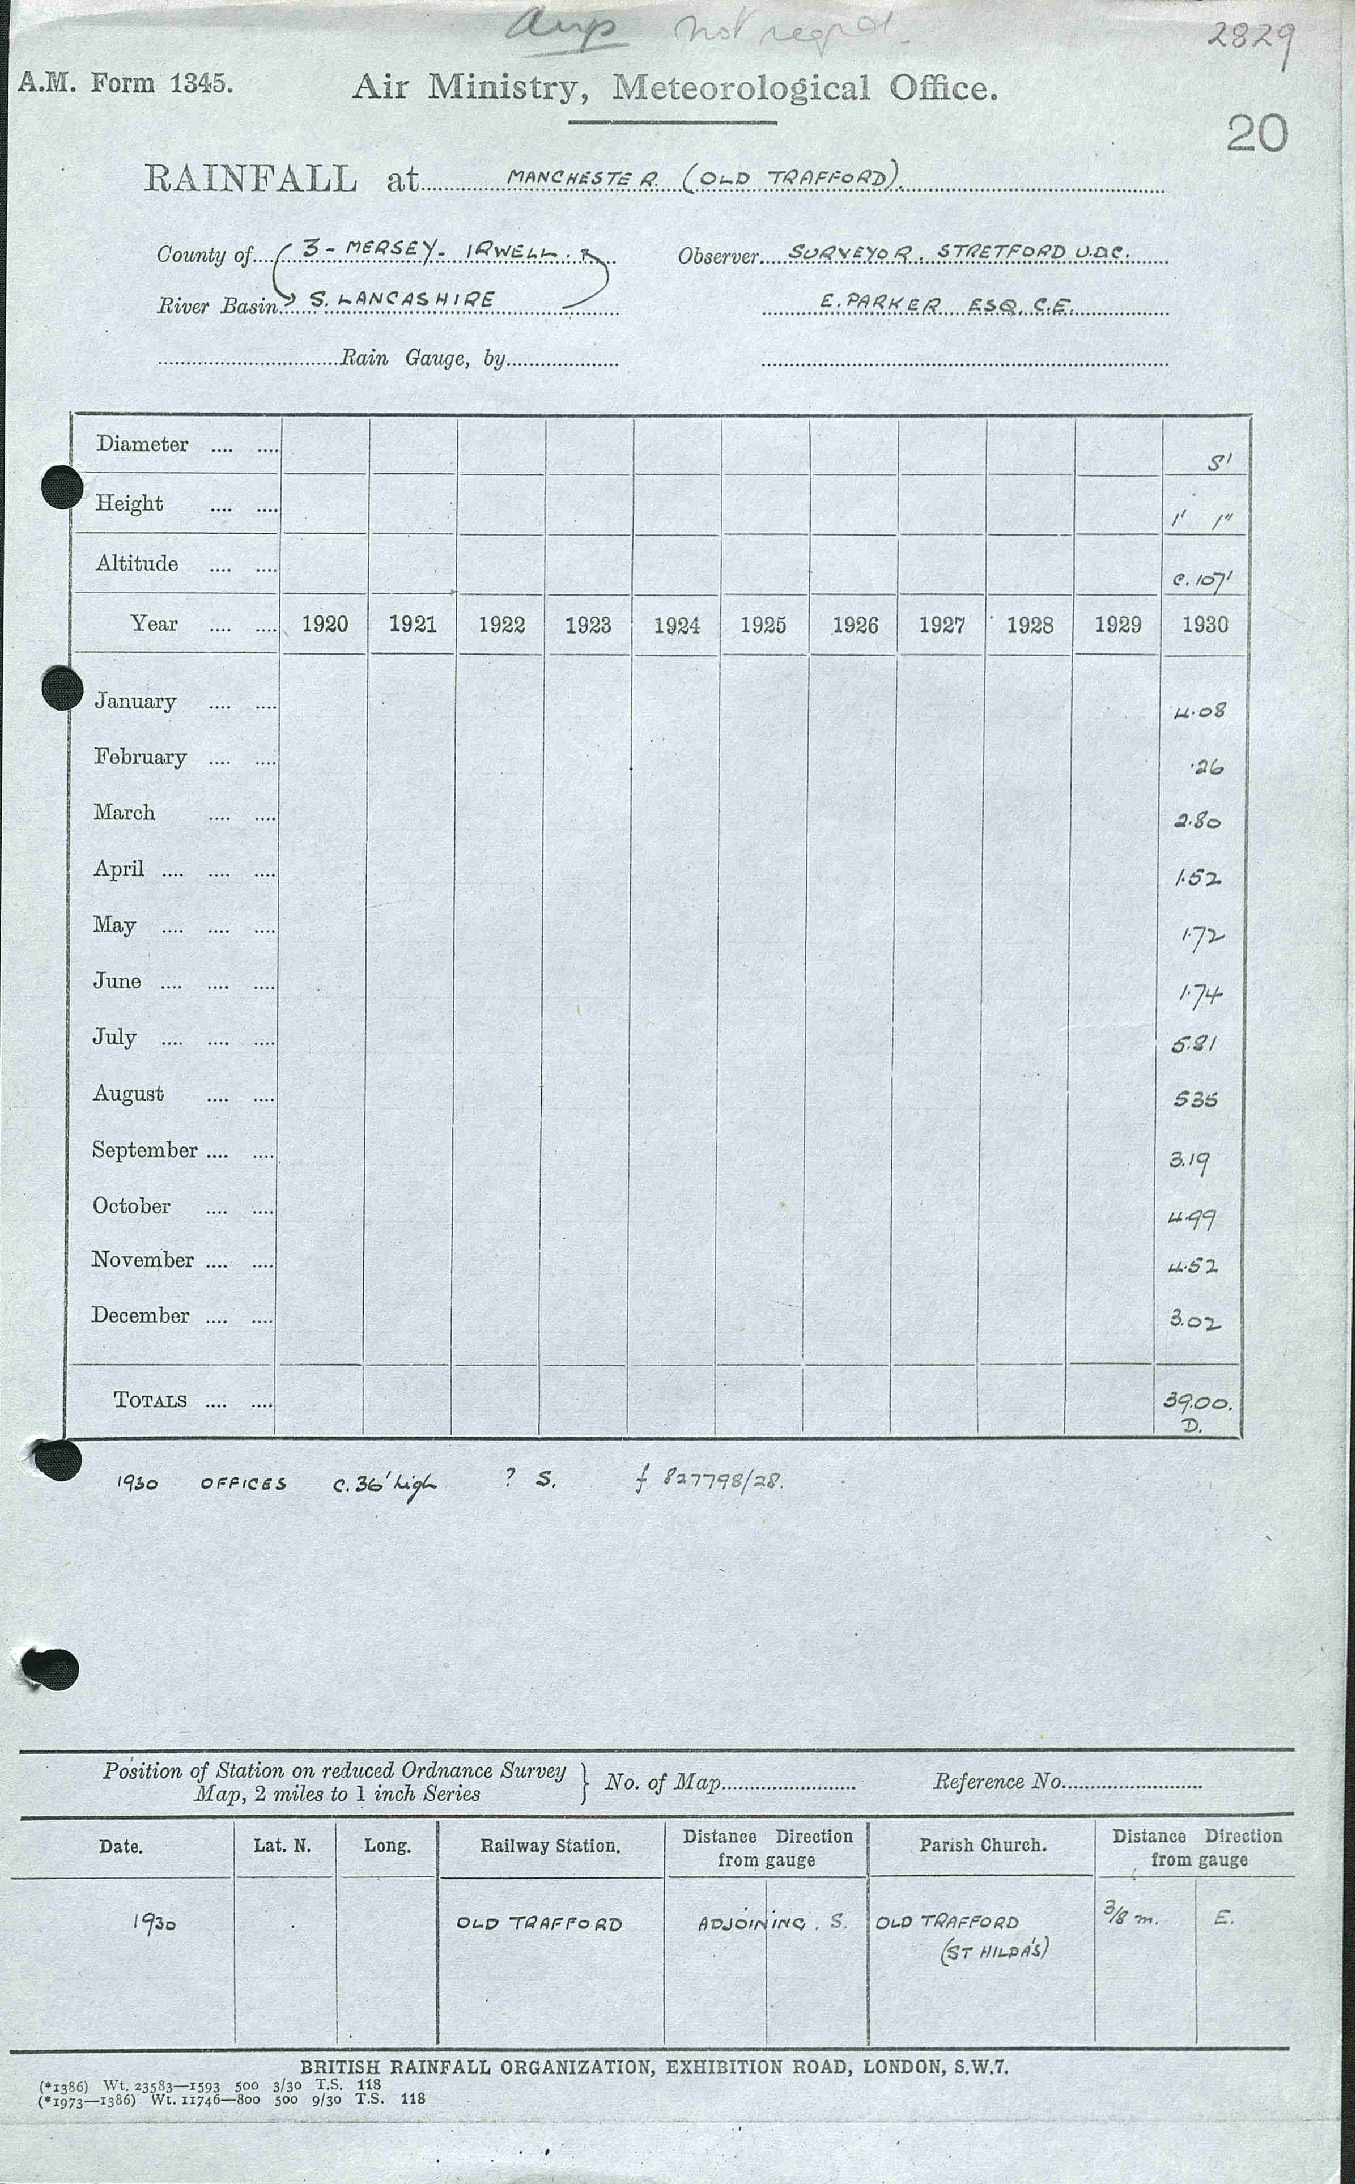 not reqd.
2829
A.M. Form 1345. Air Ministry, Meteorological Office.
20
RAINFALL at MANCHESTER (OLD TRAFFORD).
County of 3 - MERSEY. IRWELL. Observer SURVEYOR. STRETFORD U.D.C.
River Basin S. LANCASHIRE E. PARKER ESQ. C.E.
Rain Gauge, by
Diameter .... .... 
Height .... .... 1' 1"
Altitude .... .... c. 107'
Year .... .... 1920 1921 1922 1923 1924 1925 1926 1927 1928 1929 1930
January .... .... 4.08
February .... .... .26
March .... .... 2.80
April .... .... .... 1.52
May .... .... .... 1.72
June .... .... .... 1.74
July .... .... .... 5.81
August .... .... 5.35
September .... .... 3.19
October .... .... 4.99
November .... .... 4.52
December .... .... 3.02
TOTALS .... .... 39.00.
D.
1930 OFFICES c. 36' high ? S. f 827798/28.
Position of Station on reduced Ordnance Survey
Map, 2 miles to 1 inch Series } No. of Map Reference No.
Date. Lat. N. Long. Railway Station. Distance Direction from gauge Parish Church. Distance Direction from gauge
1930 OLD TRAFFORD ADJOINING. S. OLD TRAFFORD 3/8 m. E.
(ST HILDA'S)
BRITISH RAINFALL ORGANIZATION, EXHIBITION ROAD, LONDON, S.W.7.
(*1386) Wt. 23583—1593 500 3/30 T.S. 118
(*1973—1386) Wt. 11746—800 500 9/30 T.S. 118